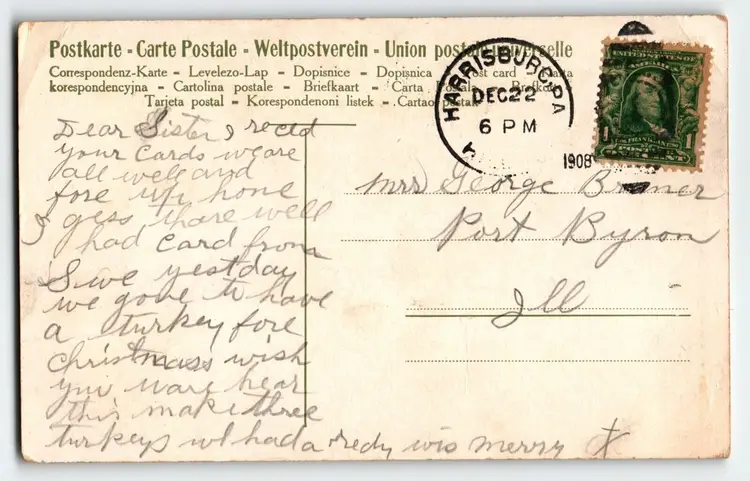 Postkarte - Carte Postale - Weltpostverein - Union postale universelle
Correspondenz-Karte - Levelezo-Lap - Dopisnice - Dopisnica - Post card - Karta
korespondencyjna - Cartolina postale - Briefkaart - Carta Postala -
Tarjeta postal - Korespondenoni listek - Cartao postale
HARRISBURG, PA
DEC 22
6 PM
1908
UNITED STATES OF
AMERICA
FRANKLIN
1
CENT
Dear Sister I recd
your cards weare
all well and
fore up home
I gess thare well
I had card from
yestday
we gone to have
a turkey fore
Christmass wish
you ware hear
this make three
turkeys we had a redy wis merry X
Mrs George
Port Byron
Ill